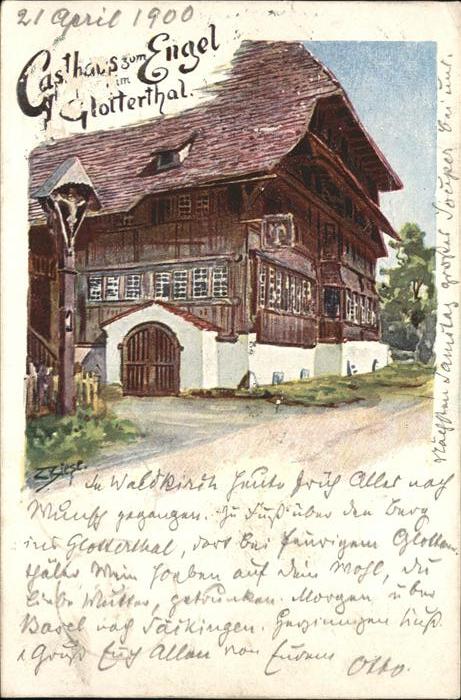 21 April 1900
Gasthaus zum Engel
im
Glotterthal.
In Waldkirch heute früh Alles nach
Wunsch gegangen. Zu Fuß über den Berg
ins Glotterthal, dort bei feurigem Glotter-
thäler Wein haben auf dein Wohl, du
liebe Mutter, getrunken. Morgen über
Basel nach Säckingen. Herzinnigen Kuß
& Gruß Euch Allen von Eurem
Otto.
Nächsten Samstag großes Souper bei uns.